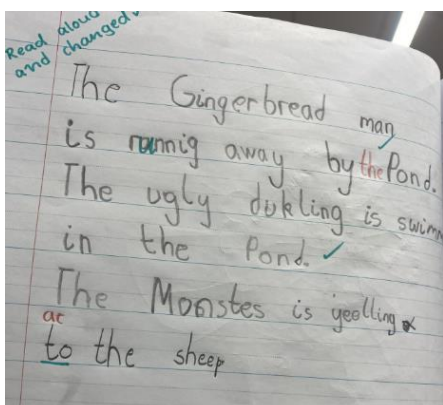 Read aloud
and changed
The Gingerbread man
is runnig away by the Pond.
The ugly dukling is swimm
in the Pond.
The Monstes is yeelling
ac
to the sheep